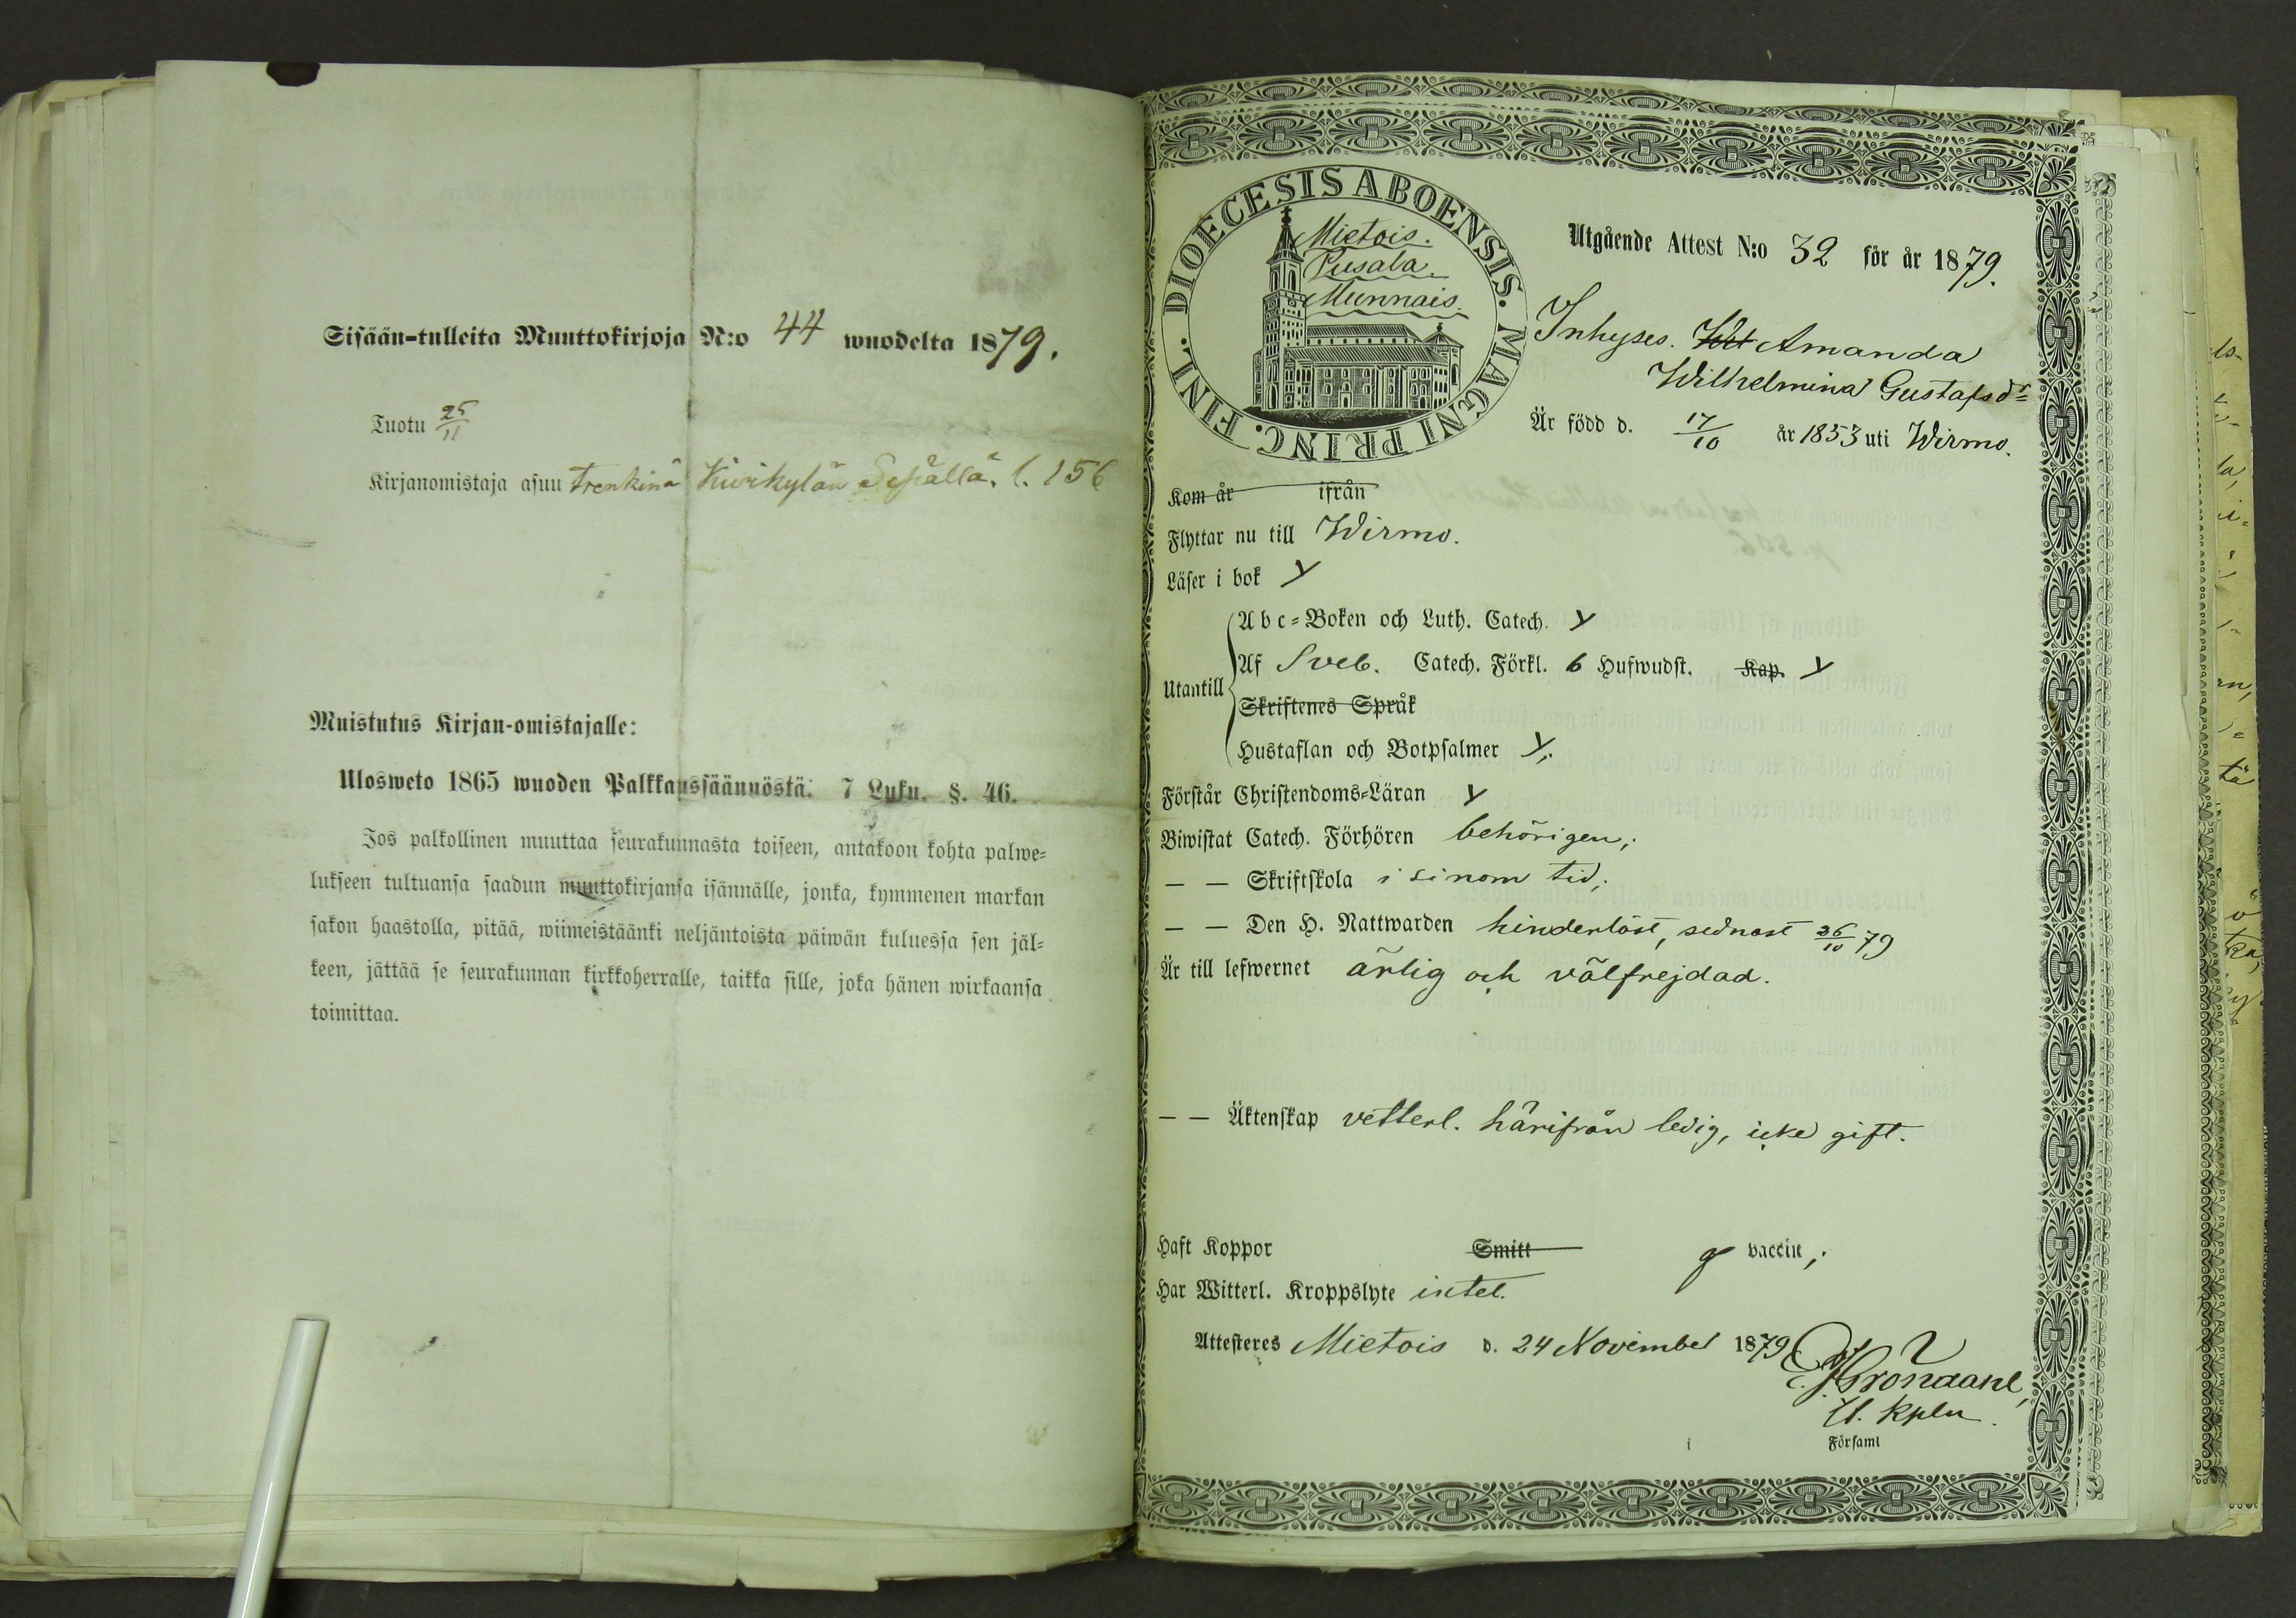 Sisään-tulleita Muuttokirjoja N:o 44 wuodelta 1879.
Tuotu 25/11
Kirjanomistaja asuu trenkinä Kiwikylän Sepällä. l. 156
Muistutus Kirjan-omistajalle:
Ulosweto 1865 wuoden Palkkaussäännöstä: 7 Luku. §. 46.
Jos palkollinen muuttaa seurakunnasta toiseen, antakoon kohta palwe-
lukseen tultuansa saadun muuttokirjansa isännälle, jonka, kymmenen markan
sakon haastolla, pitää, wiimeistäänki neljäntoista päiwän kuluessa sen jäl-
keen, jättää se seurakunnan kirkkoherralle, taikka sille, joka hänen wirkaansa
toimittaa.
DIOECESIS ABOENSIS. MAGNI PRINC. FINL.
Mietois.
Pusala
Munnais.
Utgående Attest N:o 32 för år 1879.
Inhyses. Amanda
Wilhelmina Gustafsdr
Är född d. 17/10 år 1853 uti Wirmo.
Kom år ifrån
Flyttar nu till Wirmo.
Läser i bok y
Utantill
Abc-Boken och Luth. Catech. y
Af Sveb. Catech. Förkl. 6 Hufwudst. Kap. y
Skriftenes Språk
Hustaflan och Botpsalmer y;
Förstår Christendoms-Läran y
Biwistat Catech. Förhören behörigen;
— — Skriftskola i sinom tid;
— — Den H. Nattwarden hinderlöst, sednast 26/10 79
Är till lefwernet ärlig och välfrejdad.
— — Äktenskap vetterl. härifrån ledig, icke gift.
Haft Koppor Smitt g vaccin;
Har Witterl. Kroppslyte intet.
Attesteres Mietois d. 24 November 1879
Församl